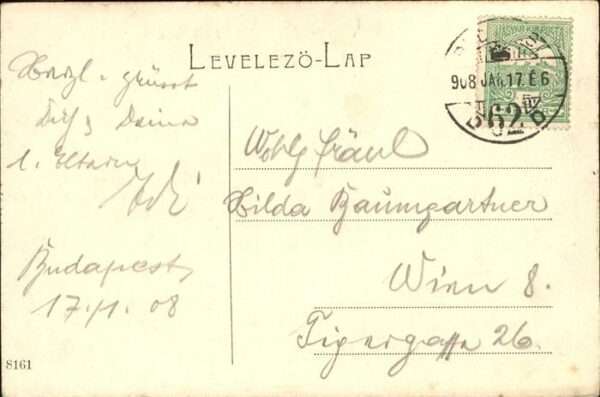 LEVELEZŐ-LAP
908 JAN. 17. É 6
62
Herzl. grüsst
Dich
Budapest,
17./1. 08
8161
Wohlg. Fräul
Hilda Baumgartner
Wien 8.
Tigergasse 26.